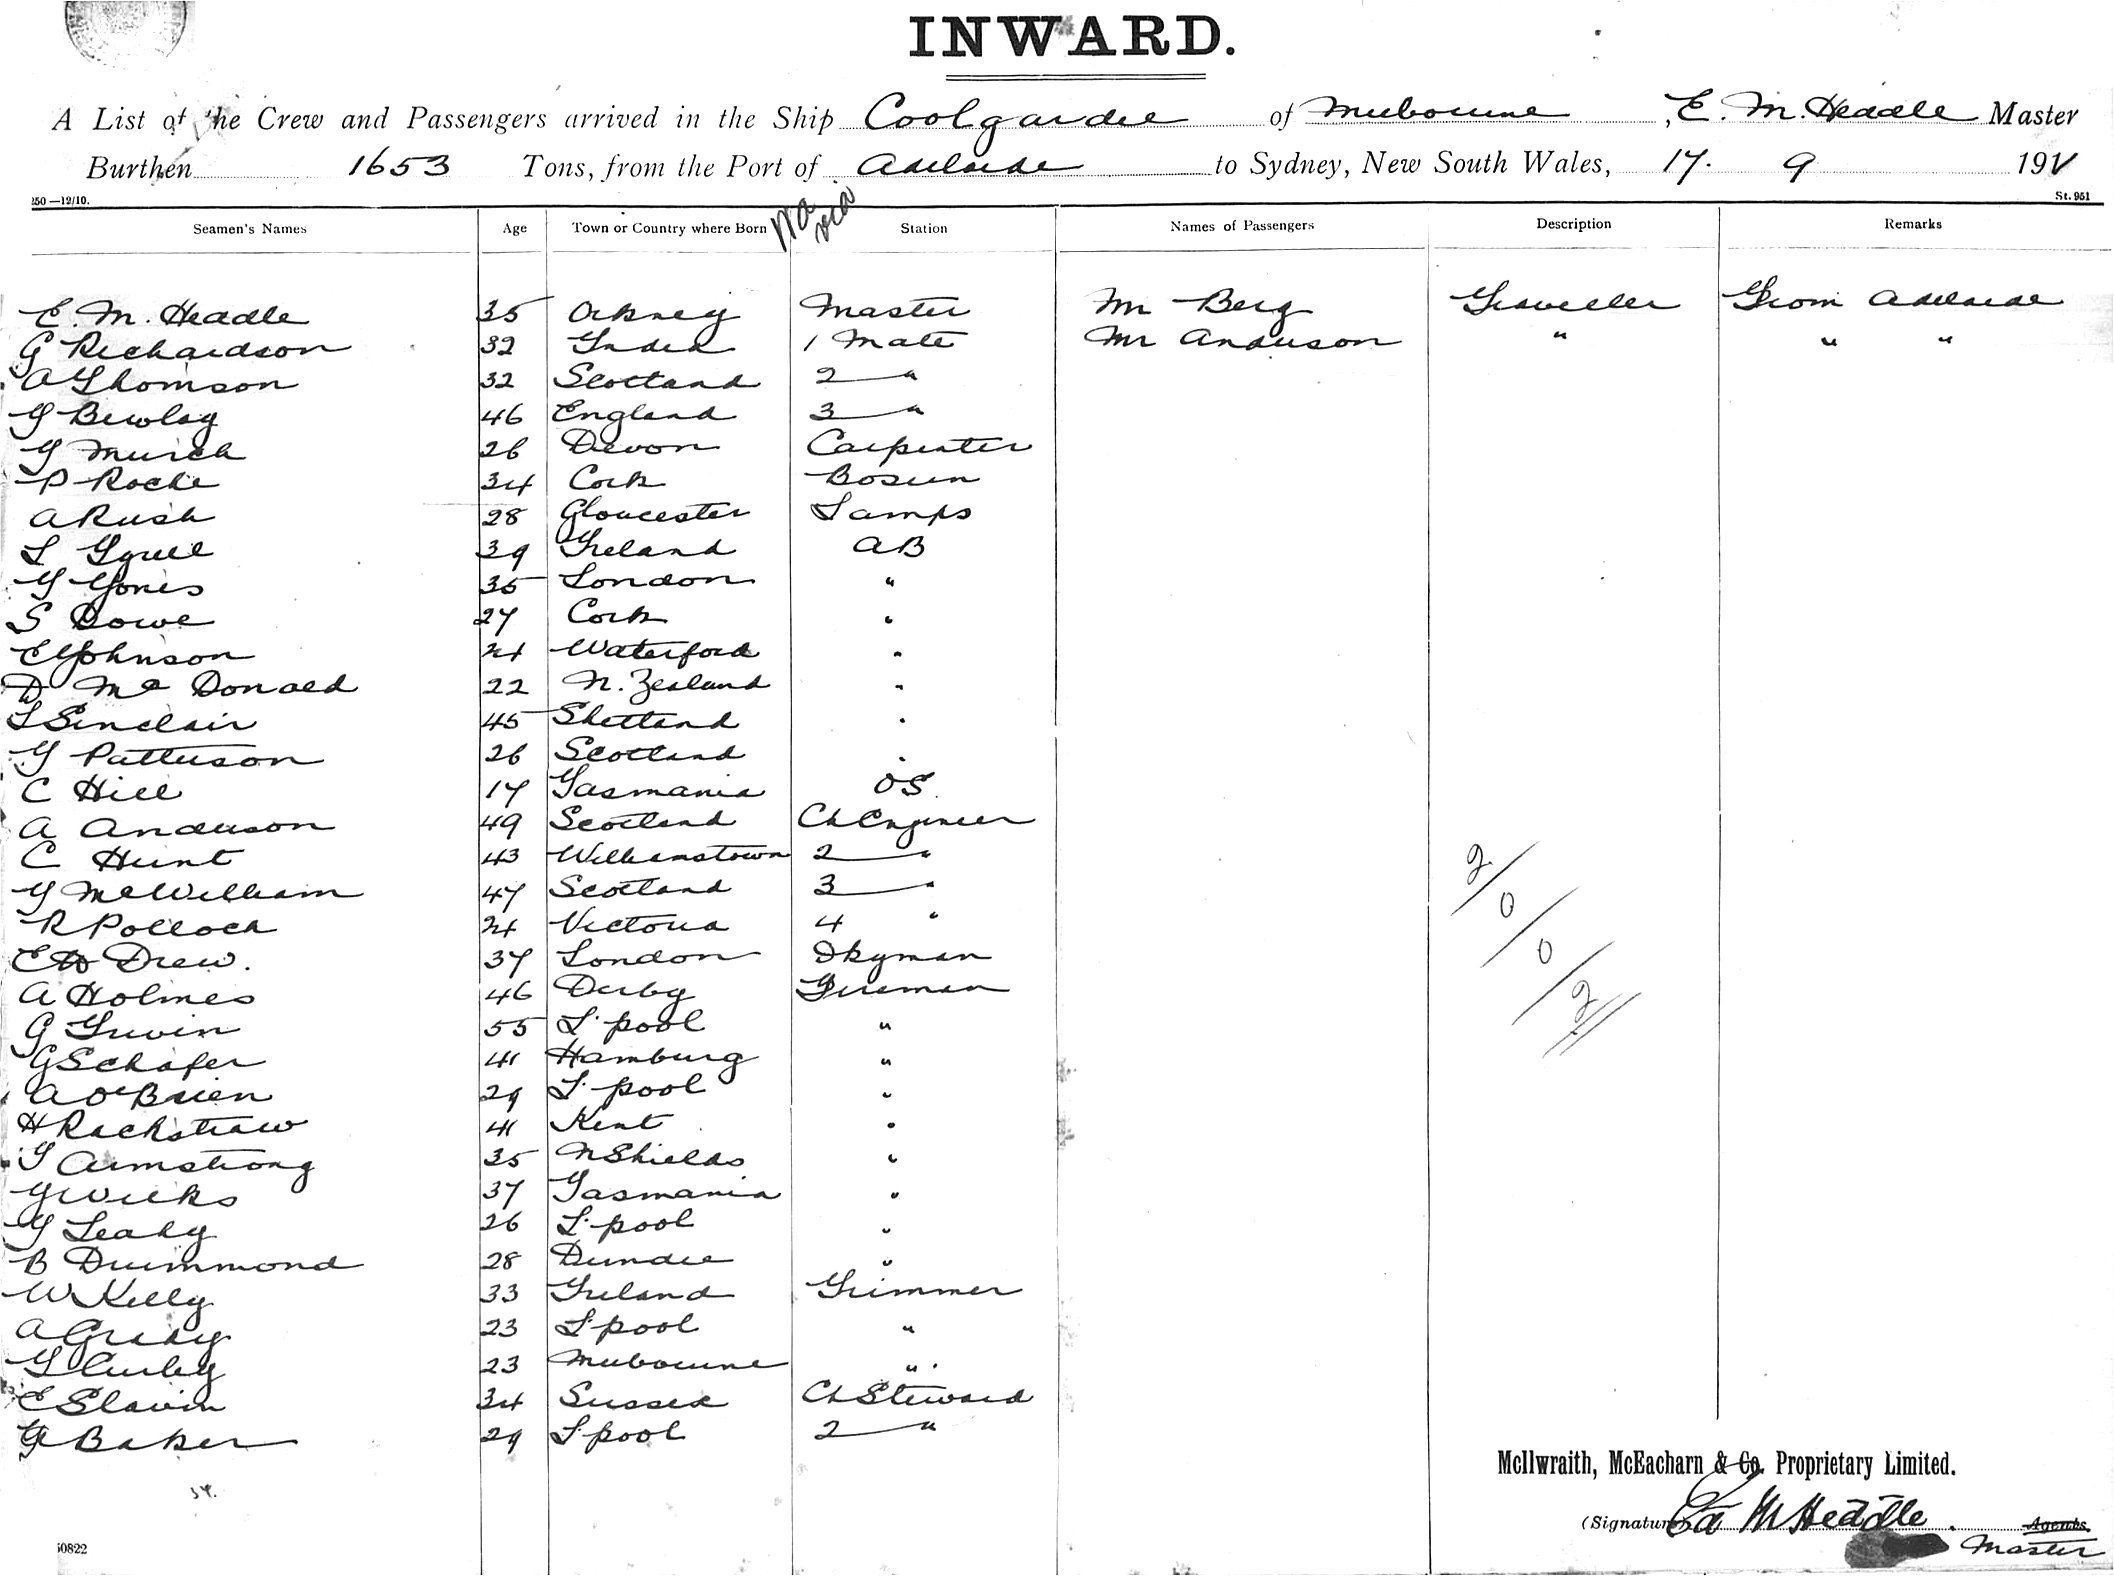 INWARD.
A List of the Crew and Passengers arrived in the Ship Coolgardie of Melbourne, E. M. Heddle Master
Burthen 1653 Tons, from the Port of Adelaide to Sydney, New South Wales, 17. 9 191
250—12/10. St. 951
Seamen's Names Age Town or Country where Born Station Names of Passengers Description Remarks
via
E. M. Heddle 35 Orkney Master Mr Berg Traveller From Adelaide
G Richardson 32 India 1 Mate Mr Anderson " " "
A Thomson 32 Scotland 2 "
J Bewlay 46 England 3 "
J Murch 26 Devon Carpenter
P Roche 34 Cork Bosun
A Rush 28 Gloucester Lamps
L 39 Ireland AB
J Jones 35 London "
S Dowe 27 Cork "
E Johnson 24 Waterford "
D McDonald 22 N. Zealand "
L Sinclair 45 Shetland "
J Patterson 26 Scotland "
C Hill 17 Tasmania OS.
A Anderson 49 Scotland Ch Engineer
C Hunt 43 Williamstown 2 "
J McWilliam 47 Scotland 3 "
R Pollock 24 Victoria 4 "
E Drew. 37 London Dkyman
A Holmes 46 Derby Fireman
G Irwin 55 L'pool "
G Schafer 41 Hamburg "
A O'Brien 29 L'pool "
H Rackstraw 41 Kent "
T Armstrong 35 N Shields "
J Weeks 37 Tasmania "
J Leahy 26 L'pool "
B Drummond 28 Dundee "
W Kelly 33 Ireland Trimmer
A Grady 23 L'pool "
T Curley 23 Melbourne "
E Slavin 34 Sussex Ch Steward
Baker 29 L'pool 2 "
2/0/0/2//
34.
McIlwraith, McEacharn & Co. Proprietary Limited.
(Signature) Ed M Heddle. Agents.
Master
50822